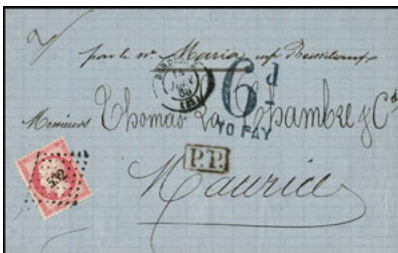 par le nre Maria
6d
TO PAY
Messieurs Thomas La Chambre & Cie
P.P.
Maurice